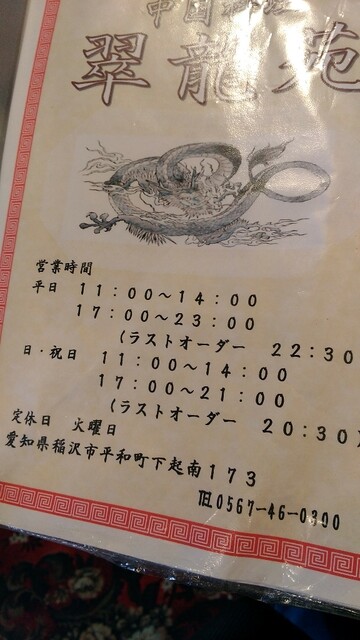 中国料理
翠龍苑
営業時間
平日 11：00～14：00
17：00～23：00
(ラストオーダー 22：30
日・祝日 11：00～14：00
17：00～21：00
(ラストオーダー 20：30)
定休日 火曜日
愛知県稲沢市平和町下起南173
℡0567-46-0300